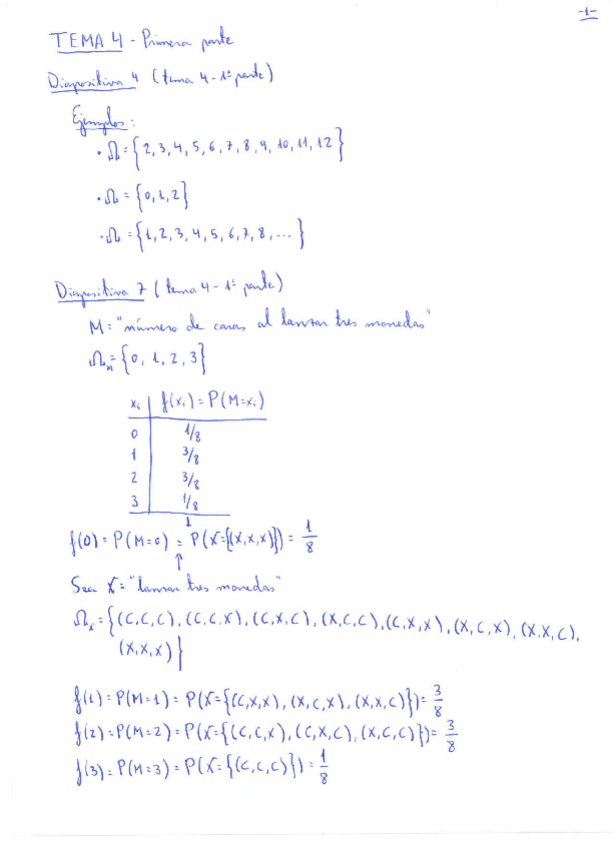 -1-
TEMA 4 - Primera parte
Diapositiva 4 (tema 4 - 1ª parte)
Ejemplos:
· Ω = {2, 3, 4, 5, 6, 7, 8, 9, 10, 11, 12}
· Ω = {0, 1, 2}
· Ω = {1, 2, 3, 4, 5, 6, 7, 8, ...}
Diapositiva 7 (tema 4 - 1ª parte)
M = "número de caras al lanzar tres monedas"
Ω_M = {0, 1, 2, 3}
xᵢ | f(xᵢ) = P(M=xᵢ)
0 | 1/8
1 | 3/8
2 | 3/8
3 | 1/8
1
f(0) = P(M=0) = P(X={(X,X,X)}) = 1/8
↑
Sea X = "lanzar tres monedas"
Ω_X = {(C,C,C), (C,C,X), (C,X,C), (X,C,C), (C,X,X), (X,C,X), (X,X,C),
(X,X,X)}
f(1) = P(M=1) = P(X={(C,X,X), (X,C,X), (X,X,C)}) = 3/8
f(2) = P(M=2) = P(X={(C,C,X), (C,X,C), (X,C,C)}) = 3/8
f(3) = P(M=3) = P(X={(C,C,C)}) = 1/8